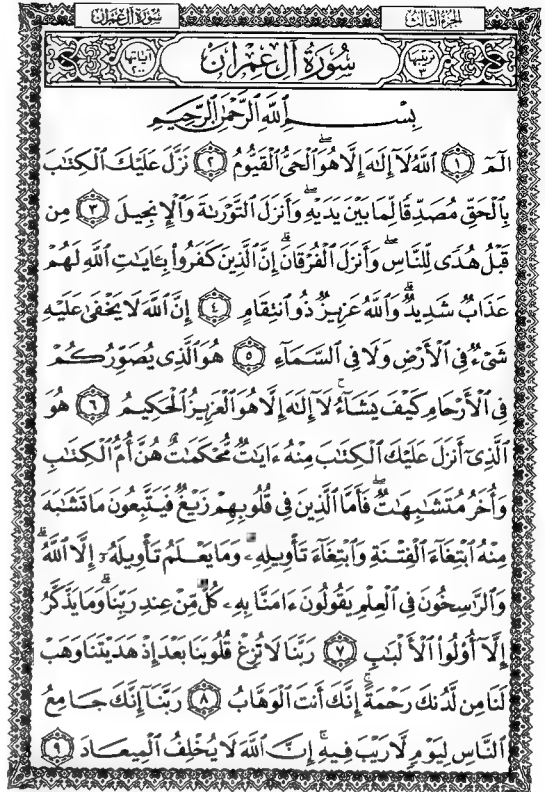 سُورَةُ آلِ عِمْرَان
الجزء الثالث
ترتيبها ٣
سُورَةُ آلِ عِمْرَان
آياتها ٢٠٠
بِسْمِ ٱللَّهِ ٱلرَّحْمَٰنِ ٱلرَّحِيمِ
الٓمٓ ﴿١﴾ ٱللَّهُ لَآ إِلَٰهَ إِلَّا هُوَ ٱلْحَىُّ ٱلْقَيُّومُ ﴿٢﴾ نَزَّلَ عَلَيْكَ ٱلْكِتَٰبَ
بِٱلْحَقِّ مُصَدِّقًا لِّمَا بَيْنَ يَدَيْهِ ۖ وَأَنزَلَ ٱلتَّوْرَىٰةَ وَٱلْإِنجِيلَ ﴿٣﴾ مِن
قَبْلُ هُدًى لِّلنَّاسِ ۖ وَأَنزَلَ ٱلْفُرْقَانَ ۗ إِنَّ ٱلَّذِينَ كَفَرُوا۟ بِـَٔايَٰتِ ٱللَّهِ لَهُمْ
عَذَابٌ شَدِيدٌ ۗ وَٱللَّهُ عَزِيزٌ ذُو ٱنتِقَامٍ ﴿٤﴾ إِنَّ ٱللَّهَ لَا يَخْفَىٰ عَلَيْهِ
شَىْءٌ فِى ٱلْأَرْضِ وَلَا فِى ٱلسَّمَآءِ ﴿٥﴾ هُوَ ٱلَّذِى يُصَوِّرُكُمْ
فِى ٱلْأَرْحَامِ كَيْفَ يَشَآءُ ۚ لَآ إِلَٰهَ إِلَّا هُوَ ٱلْعَزِيزُ ٱلْحَكِيمُ ﴿٦﴾ هُوَ
ٱلَّذِىٓ أَنزَلَ عَلَيْكَ ٱلْكِتَٰبَ مِنْهُ ءَايَٰتٌ مُّحْكَمَٰتٌ هُنَّ أُمُّ ٱلْكِتَٰبِ
وَأُخَرُ مُتَشَٰبِهَٰتٌ ۖ فَأَمَّا ٱلَّذِينَ فِى قُلُوبِهِمْ زَيْغٌ فَيَتَّبِعُونَ مَا تَشَٰبَهَ
مِنْهُ ٱبْتِغَآءَ ٱلْفِتْنَةِ وَٱبْتِغَآءَ تَأْوِيلِهِۦ وَمَا يَعْلَمُ تَأْوِيلَهُۥٓ إِلَّا ٱللَّهُ ۗ
وَٱلرَّٰسِخُونَ فِى ٱلْعِلْمِ يَقُولُونَ ءَامَنَّا بِهِۦ كُلٌّ مِّنْ عِندِ رَبِّنَا ۗ وَمَا يَذَّكَّرُ
إِلَّآ أُو۟لُوا۟ ٱلْأَلْبَٰبِ ﴿٧﴾ رَبَّنَا لَا تُزِغْ قُلُوبَنَا بَعْدَ إِذْ هَدَيْتَنَا وَهَبْ
لَنَا مِن لَّدُنكَ رَحْمَةً ۚ إِنَّكَ أَنتَ ٱلْوَهَّابُ ﴿٨﴾ رَبَّنَآ إِنَّكَ جَامِعُ
ٱلنَّاسِ لِيَوْمٍ لَّا رَيْبَ فِيهِ ۚ إِنَّ ٱللَّهَ لَا يُخْلِفُ ٱلْمِيعَادَ ﴿٩﴾